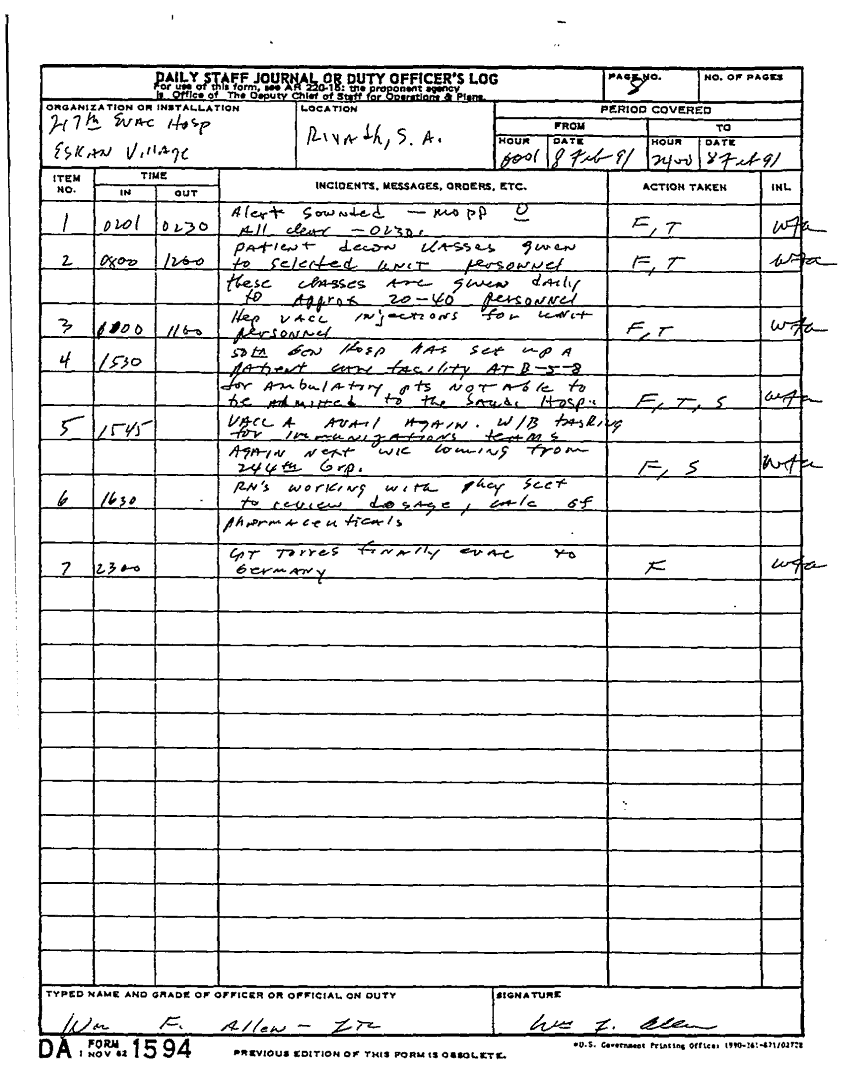 DAILY STAFF JOURNAL OR DUTY OFFICER'S LOG
For use of this form, see AR 220-15; the proponent agency
is Office of The Deputy Chief of Staff for Operations & Plans.
PAGE NO.
NO. OF PAGES
ORGANIZATION OR INSTALLATION
217th Evac Hosp
ESKAN Village
LOCATION
Riyadh, S.A.
PERIOD COVERED
FROM
TO
HOUR
DATE
HOUR
DATE
0001
8 Feb 91
2400
8 Feb 91
ITEM NO.
TIME
IN
OUT
INCIDENTS, MESSAGES, ORDERS, ETC.
ACTION TAKEN
INL.
1 0201 0230 Alert Sounded — MOPP 0
All clear — 0230. F, T wfa
2 0800 1200 patient decon classes given
to selected unit personnel F, T wfa
these classes are given daily
to Approx 20-40 personnel
3 1100 Hep VACC injections for unit
personnel F, T wfa
4 1530 50th Gen Hosp has set up A
patient care facility AT B-5-8
for Ambulatory pts NOT Able to
be Admitted to the Saudi Hosp. F, T, S wfa
5 1545 VACC A AVAIL AGAIN. W/B tasking
for immunizations teams
AGAIN next wk coming from
244th Grp. F, S wfa
6 1630 RN's working with phar sect
to review dosage, calc of
pharmaceuticals
7 2300 CPT Torres finally evac to
Germany F wfa
TYPED NAME AND GRADE OF OFFICER OR OFFICIAL ON DUTY
Wm F. Allen - LTC
SIGNATURE
Wm F. Allen
DA FORM 1 NOV 62 1594
PREVIOUS EDITION OF THIS FORM IS OBSOLETE.
*U.S. Government Printing Office: 1990-261-871/02728